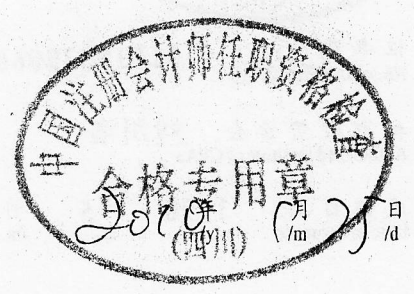 中国注册会计师任职资格检查
合格专用章
2010年 月 25日
/y /m /d
(四川)